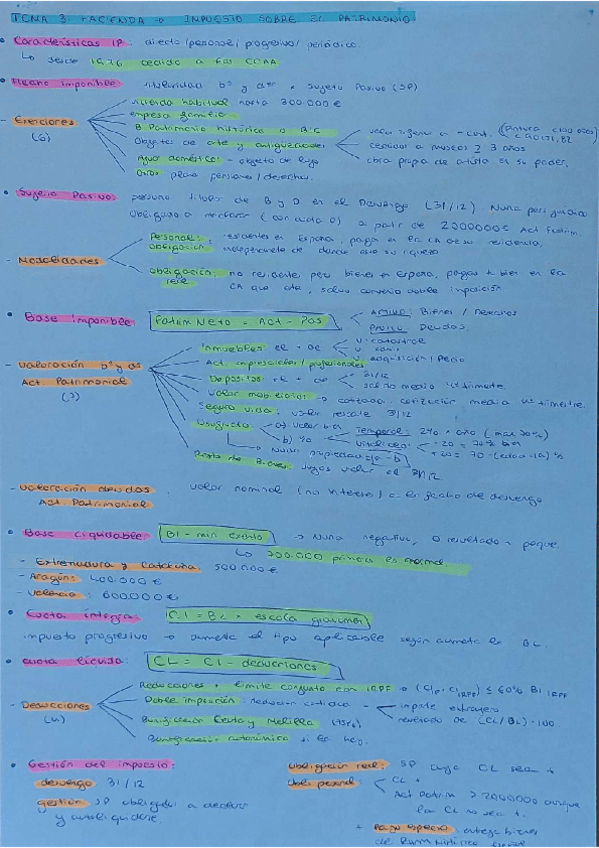 TEMA 3 HACIENDA → IMPUESTO SOBRE EL PATRIMONIO
• Características IP: directo/personal/progresivo/periódico.
↳ desde cedido a las CCAA
• Hecho imponible: titularidad bs y dºs Sujeto Pasivo (SP)
- Exenciones
(6)
vivienda habitual hasta 300.000€
empresa familiar
B. Patrimonio histórico o BIC
Objetos de arte y antigüedades
cedidos a museos 3 años
obra propia de artista en su poder.
Ajuar doméstico - objeto de lujo
Otros: planes pensiones/derechos.
• Sujeto Pasivo: persona titular de B y D en el Devengo (31/12) Nunca pers jurídica
Obligado a declarar a partir de 2000000€ Act Patrim.
- Modalidades
Personal: residentes en España, paga en la CA de su residencia,
obligación independiente de donde esté su riqueza
Obligación real: no residente pero bienes en España, pagas x bien en la
CA que esté, salvo convenio doble imposición
• Base imponible: Patrim Neto = Act - Pas
Activo: Bienes / Derechos
Pasivo: Deudas.
- Valoración bs y ds
Act. Patrimonial
(7)
Inmuebles: el + de
V. catastral
V. adquisición/Precio
Act empresariales/profesionales
Depósitos: el + de
31/12
saldo medio 4º trimestre
Valor mobiliario: cotizada, cotización media 4º trimestre.
Seguro vida: valor rescate 31/12
Usufructo
a) valor bien
b) %
Temporal: 2% · año (max 70%)
Vitalicio:
-20 = 70% bien
+20 = 70 - (edad - 19) %
Nuda propiedad
Resto de Bienes: 31/12
- Valoración deudas: valor nominal (no interés) a la fecha de devengo
Act. Patrimonial
• Base liquidable: BI - min exento → Nunca negativa, 0 resultado + peque
↳ 700.000 primeros es normal.
- Extremadura y Cataluña: 500.000€
- Aragón: 400.000€
- Valencia: 600.000€
• Cuota íntegra: C.I = BL · escala gravamen
impuesto progresivo → aumenta el tipo aplicable según aumenta la BL.
• Cuota líquida: CL = CI - deducciones
- Deducciones
(4)
Reducciones x límite conjunto con IRPF → (CIp + CI IRPF) ≤ 60% BI IRPF
Doble imposición: reducción
importe extranjero
resultado de (CL/BL) · 100.
Bonificación Ceuta y Melilla (75%)
Bonificación autonómica si la hay.
• Gestión del impuesto:
devengo 31/12
gestión: SP obligado a declarar
y autoliquidarse.
Obligación real: SP cuya CL sea +
Obli personal
CL +
Act Patrim > 2000000 aunque
la CL no sea +.
+ pago especie: entrega bienes
del Patrim Histórico